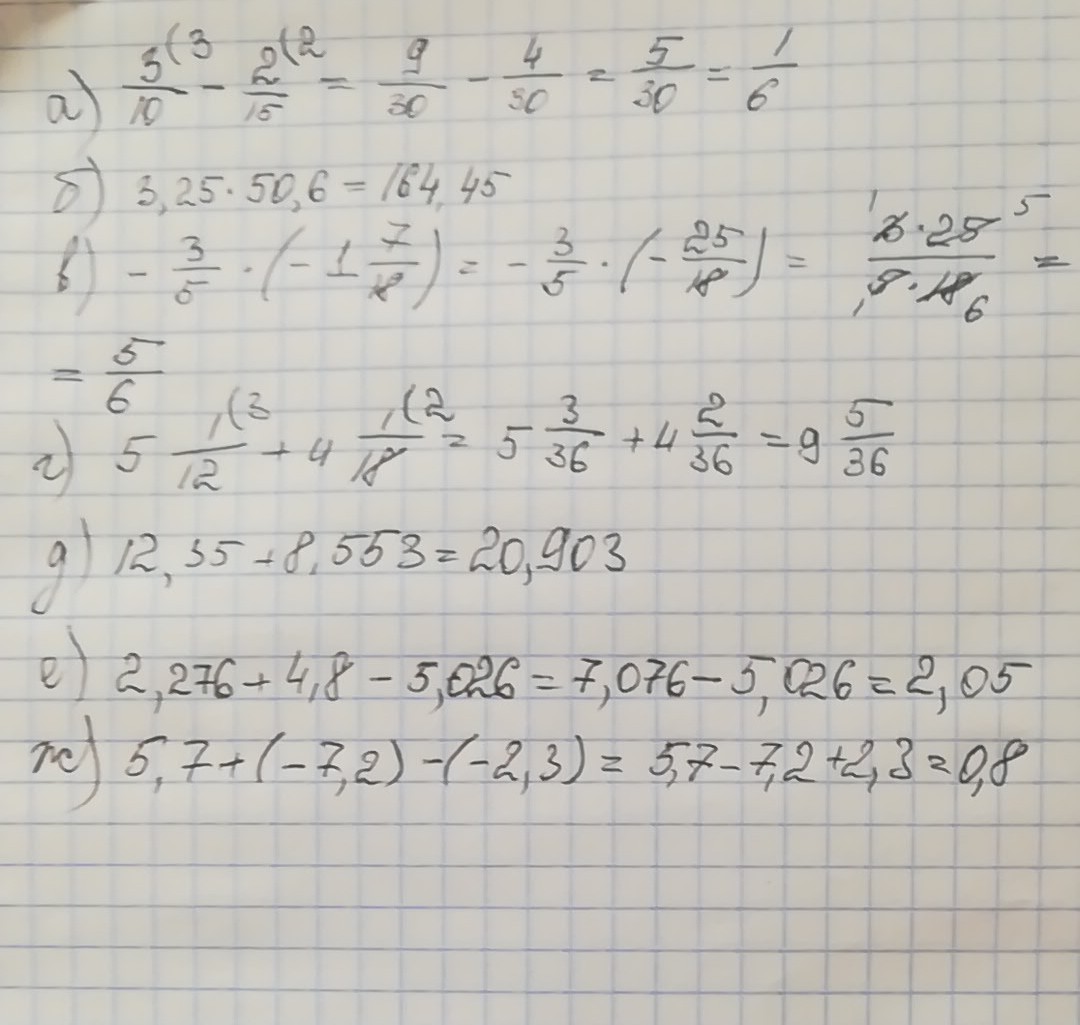 а) 3(3/10 - 2(2/15 = 9/30 - 4/30 = 5/30 = 1/6
б) 3,25·50,6 = 164,45
в) - 3/5 · (- 1 7/18) = - 3/5 · (- 25/18) = 1 3·25 5 / 1 5·18 6 =
= 5/6
г) 5 1(3/12 + 4 1(2/18 = 5 3/36 + 4 2/36 = 9 5/36
д) 12,35 + 8,553 = 20,903
е) 2,276 + 4,8 - 5,026 = 7,076 - 5,026 = 2,05
ж) 5,7 + (-7,2) - (-2,3) = 5,7 - 7,2 + 2,3 = 0,8